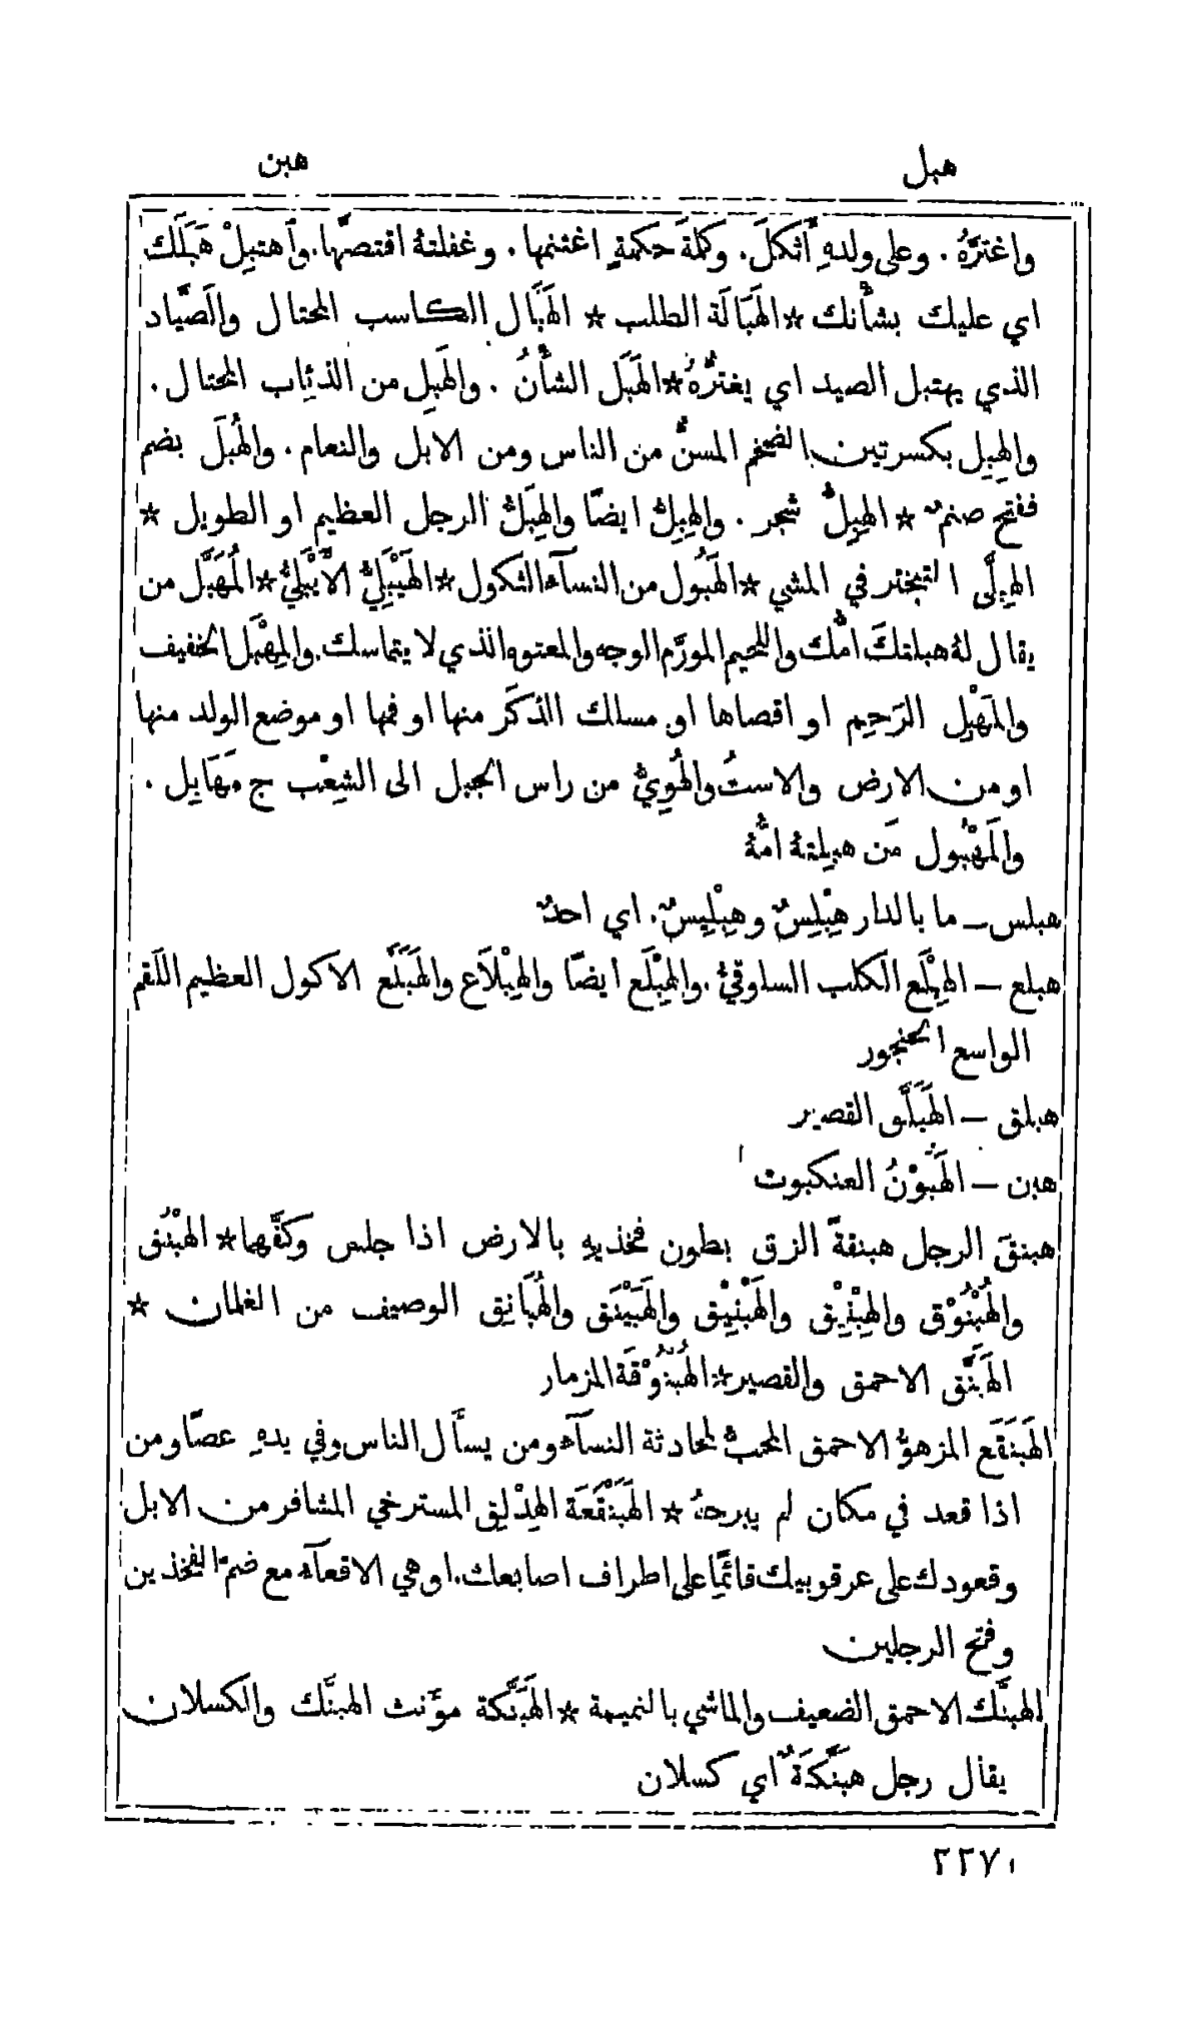 هبل
هبن
واغترَّهُ . وعلى ولدهِ أَثكلَ . وكلمةَ حكمةٍ اغتنمها . وغفلتهُ افتصَّها . وٱهتبِلْ هَبَلَك
اي عليك بشأنك ☆ الهَبَالَة الطلب ☆ الهَبَّال الكاسب المحتال والصَّياد
الذي يهتبل الصيد اي يغترُّهُ ☆ الهَبَل الشأْنُ . والهَبِل من الذئاب المحتال .
والهِبِل بكسرتين الضخم المسنُّ من الناس ومن الابل والنعام . والهُبَل بضم
ففتح صنمٌ ☆ الهِبِلُّ شجر . والهِبِلُّ ايضًا والهِبَلُّ الرجل العظيم او الطويل ☆
الهِبِلَّى التبختر في المشي ☆ الهَبُول من النسآء الثكول ☆ الهَيْبَلِيُّ الأَيْبَلِيُّ ☆ المُهَبَّل من
يقال لهُ هبلتكَ امُّك واللحيم المورَّم الوجه والمعتوه الذي لا يتماسك . والمِهْبَل الخفيف
والمَهْبِل الرَحِم او اقصاها او مسلك الذكَر منها او فمها او موضع الولد منها
او من الارض والاستُ والهُوِيُّ من راس الجبل الى الشِعْب ج مَهَابِل .
والمَهْبُول مَن هبلتهُ امُّهُ
هبلس — ما بالدار هِبْلِسٌ وهِبْلِيسٌ . اي احدٌ
هبلع — الهِبْلَع الكلب السلوقيُّ . والهِبْلَع ايضًا والهِبْلَاع والهَبَلَّع الاكول العظيم اللَقم
الواسع الحنجور
هبلق — الهَبَلَّق القصير
هبن — الهَبُوْنُ العنكبوت
هبنقَ الرجل هبنقةً الزق بطون فخذيهِ بالارض اذا جلس وكفَّهما ☆ الهُبْنُق
والهُبْنُوْق والهِبْنِيْق والهَبْنِيْق والهَبَيْنَق والهُبَانِق الوصيف من الغلمان ☆
الهَبَنَّق الاحمق والقصير ☆ الهُبْنُوْقَة المزمار
الهَبَنْقَع المزهوُّ الاحمق المحبُّ لمحادثة النسآء ومن يسأَل الناس وفي يدهِ عصًا ومن
اذا قعد في مكان لم يبرحهُ ☆ الهَبَنْقَعَة الهِدْلِق المسترخي المشافر من الابل
وقعودك على عرقوبيك قائمًا على اطراف اصابعك . او هي الاقعآء مع ضمّ الفخذين
وفتح الرجلين
الهبنَّك الاحمق الضعيف والماشي بالنميمة ☆ الهَبَنَّكة مؤَنث الهبنَّك والكسلان
يقال رجل هبَنَّكَةٌ اي كسلان
٢٢٧١